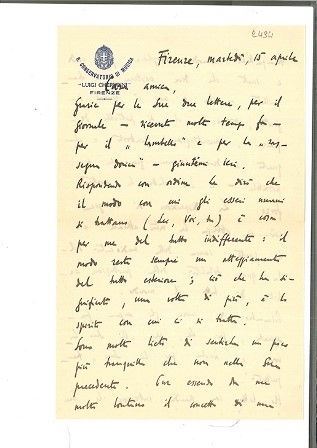 2494
R. CONSERVATORIO DI MUSICA
"LUIGI CHERUBINI"
FIRENZE
Firenze, martedì, 15 aprile
amica,
Grazie per le Sue due lettere, per il
giornale – ricevuto molto tempo fa –
per il " " e per la "ras-
segna dorica" – giuntimi ieri.
Rispondendo con ordine Le dirò che
il modo con cui gli esseri umani
si trattano (Lei, Voi, tu) è cosa
per me del tutto indifferente: il
modo resta sempre un atteggiamento
del tutto esteriore; ciò che ha si-
gnificato, una volta di più, è lo
spirito con cui ci si tratta.
Sono molto lieto di sentirla un poco
più tranquilla che non nella Sua
precedente. Pur essendo da me
molto lontano il concetto di una